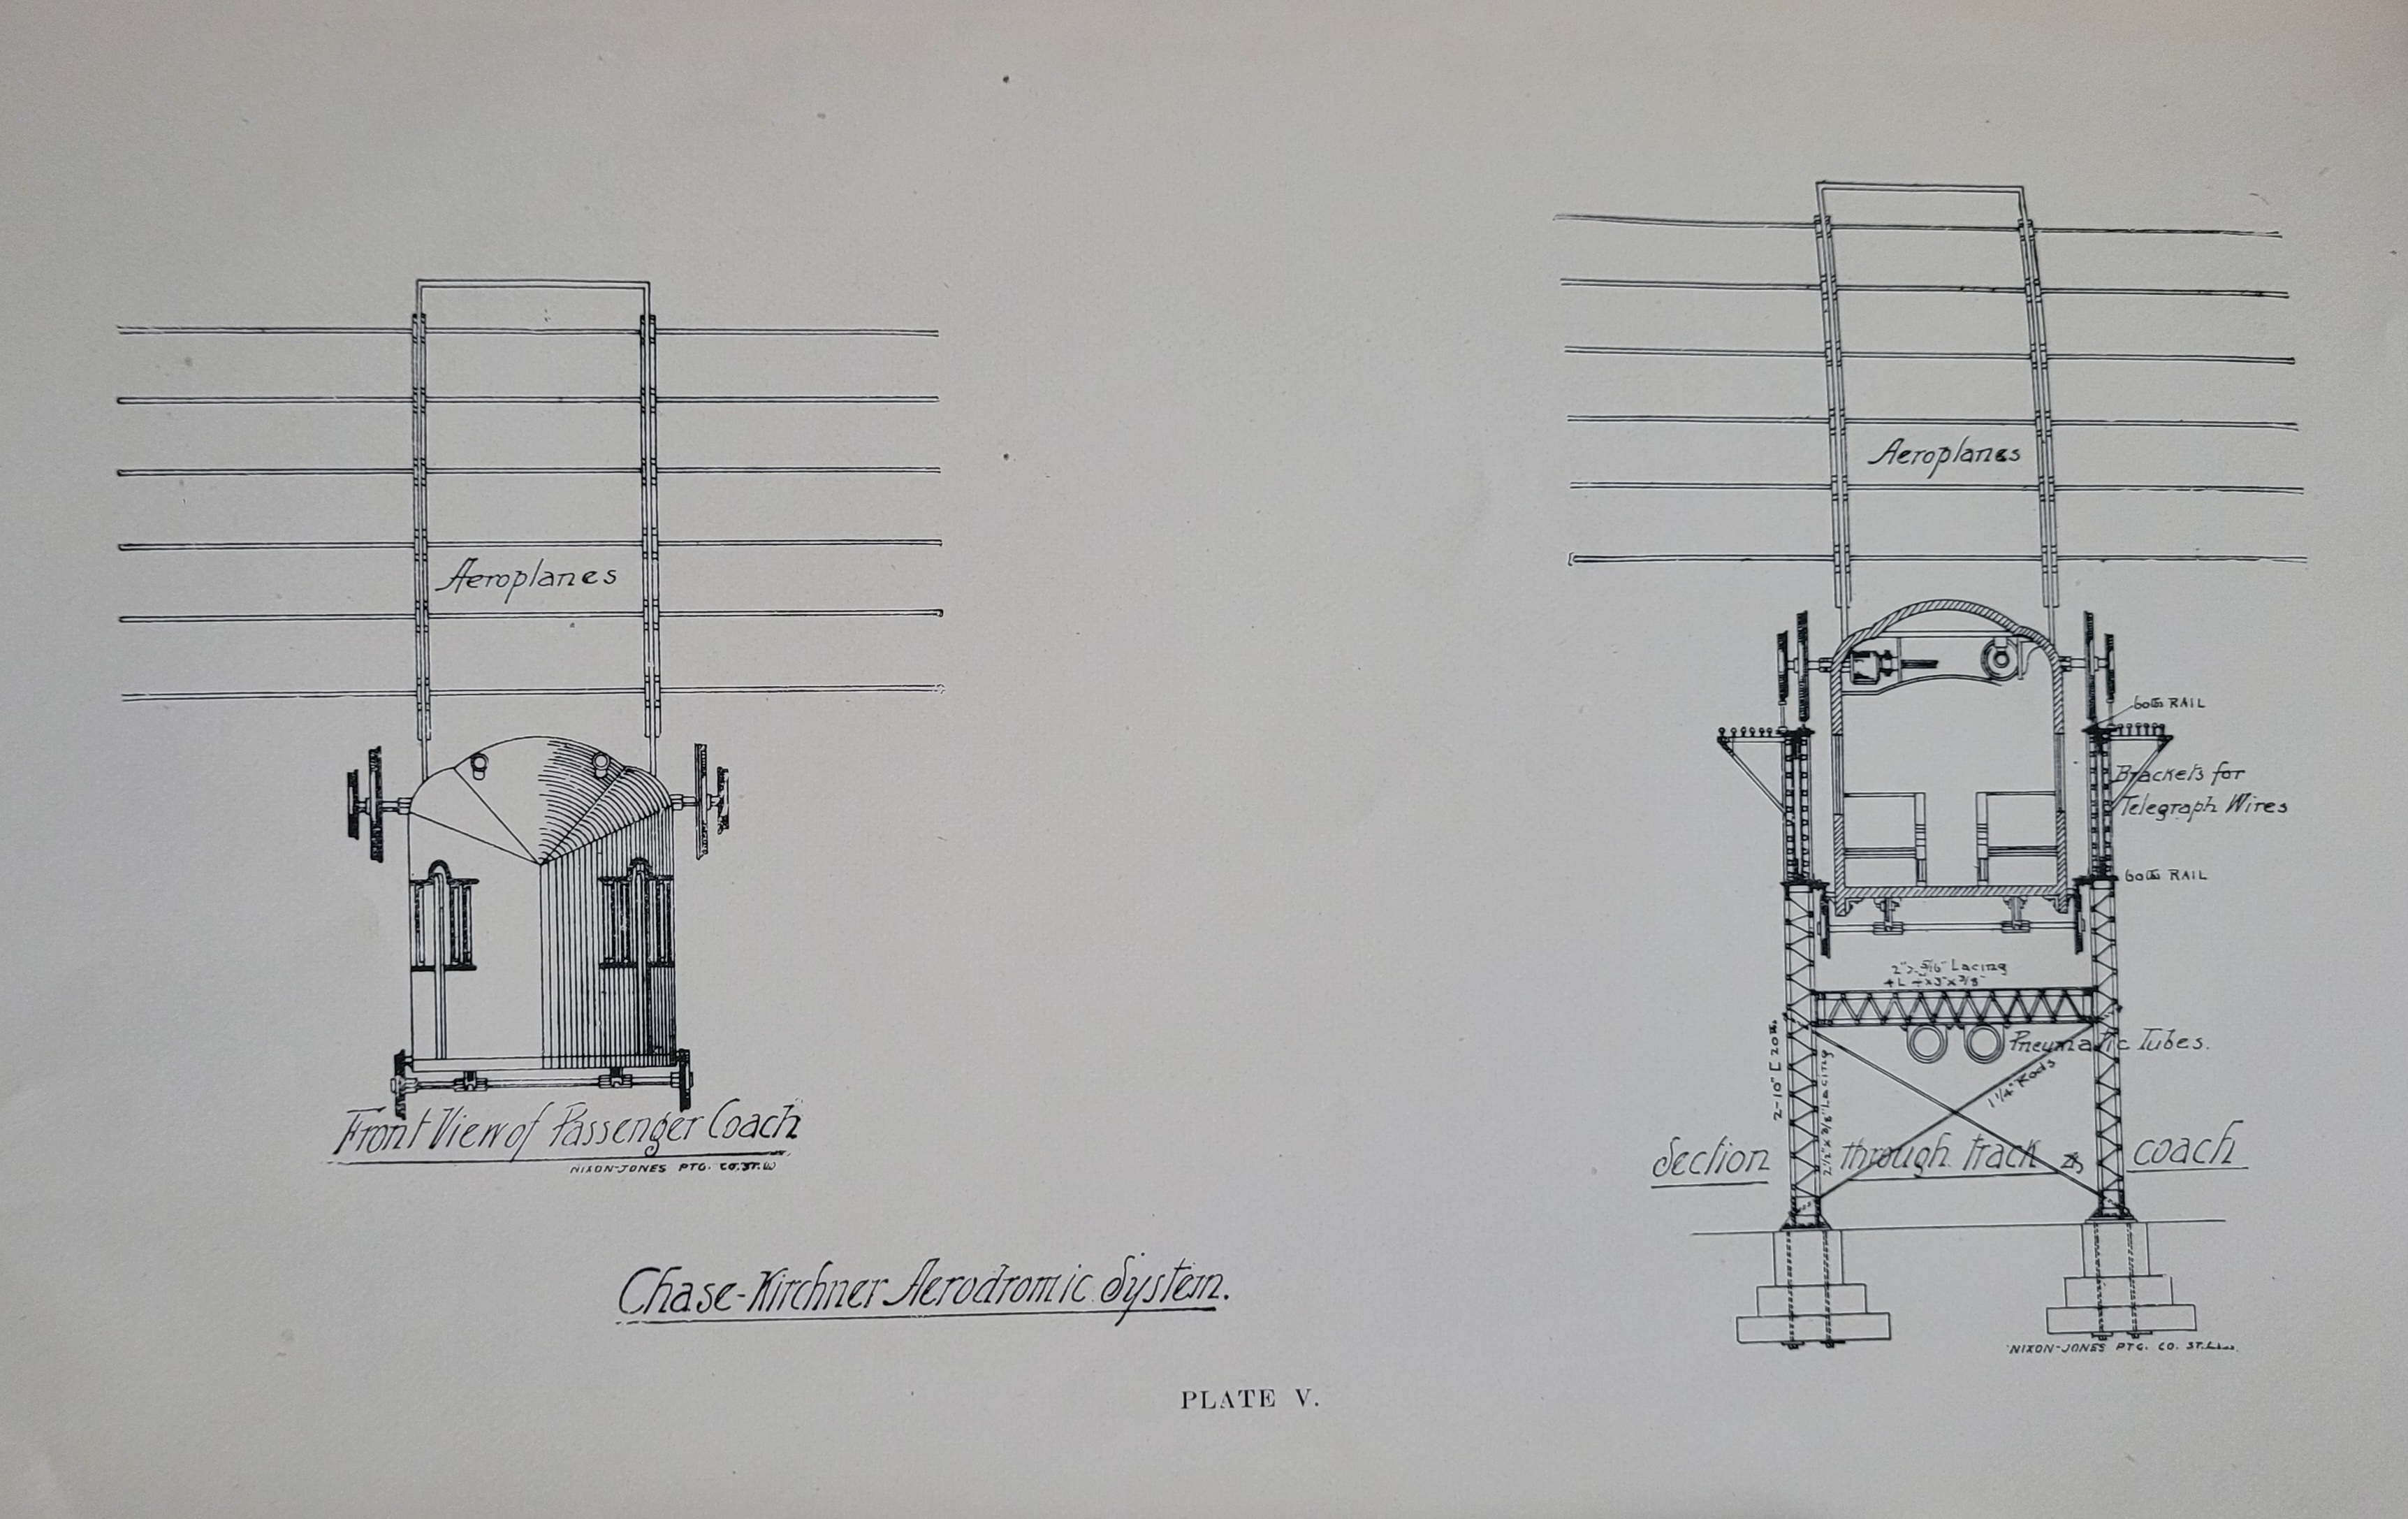 Aeroplanes
Front View of Passenger Coach
NIXON-JONES PTG. CO. ST. L
Aeroplanes
60 lb RAIL
Brackets for
Telegraph Wires
60 lb RAIL
2" x 5/16" Lacing
Pneumatic Tubes.
1 1/4" Rods
2-10" [ 20 lb.
2 1/2" x 3/8" Lacing
Section through track & coach
NIXON-JONES PTG. CO. ST. Louis.
Chase-Kirchner Aerodromic System.
PLATE V.